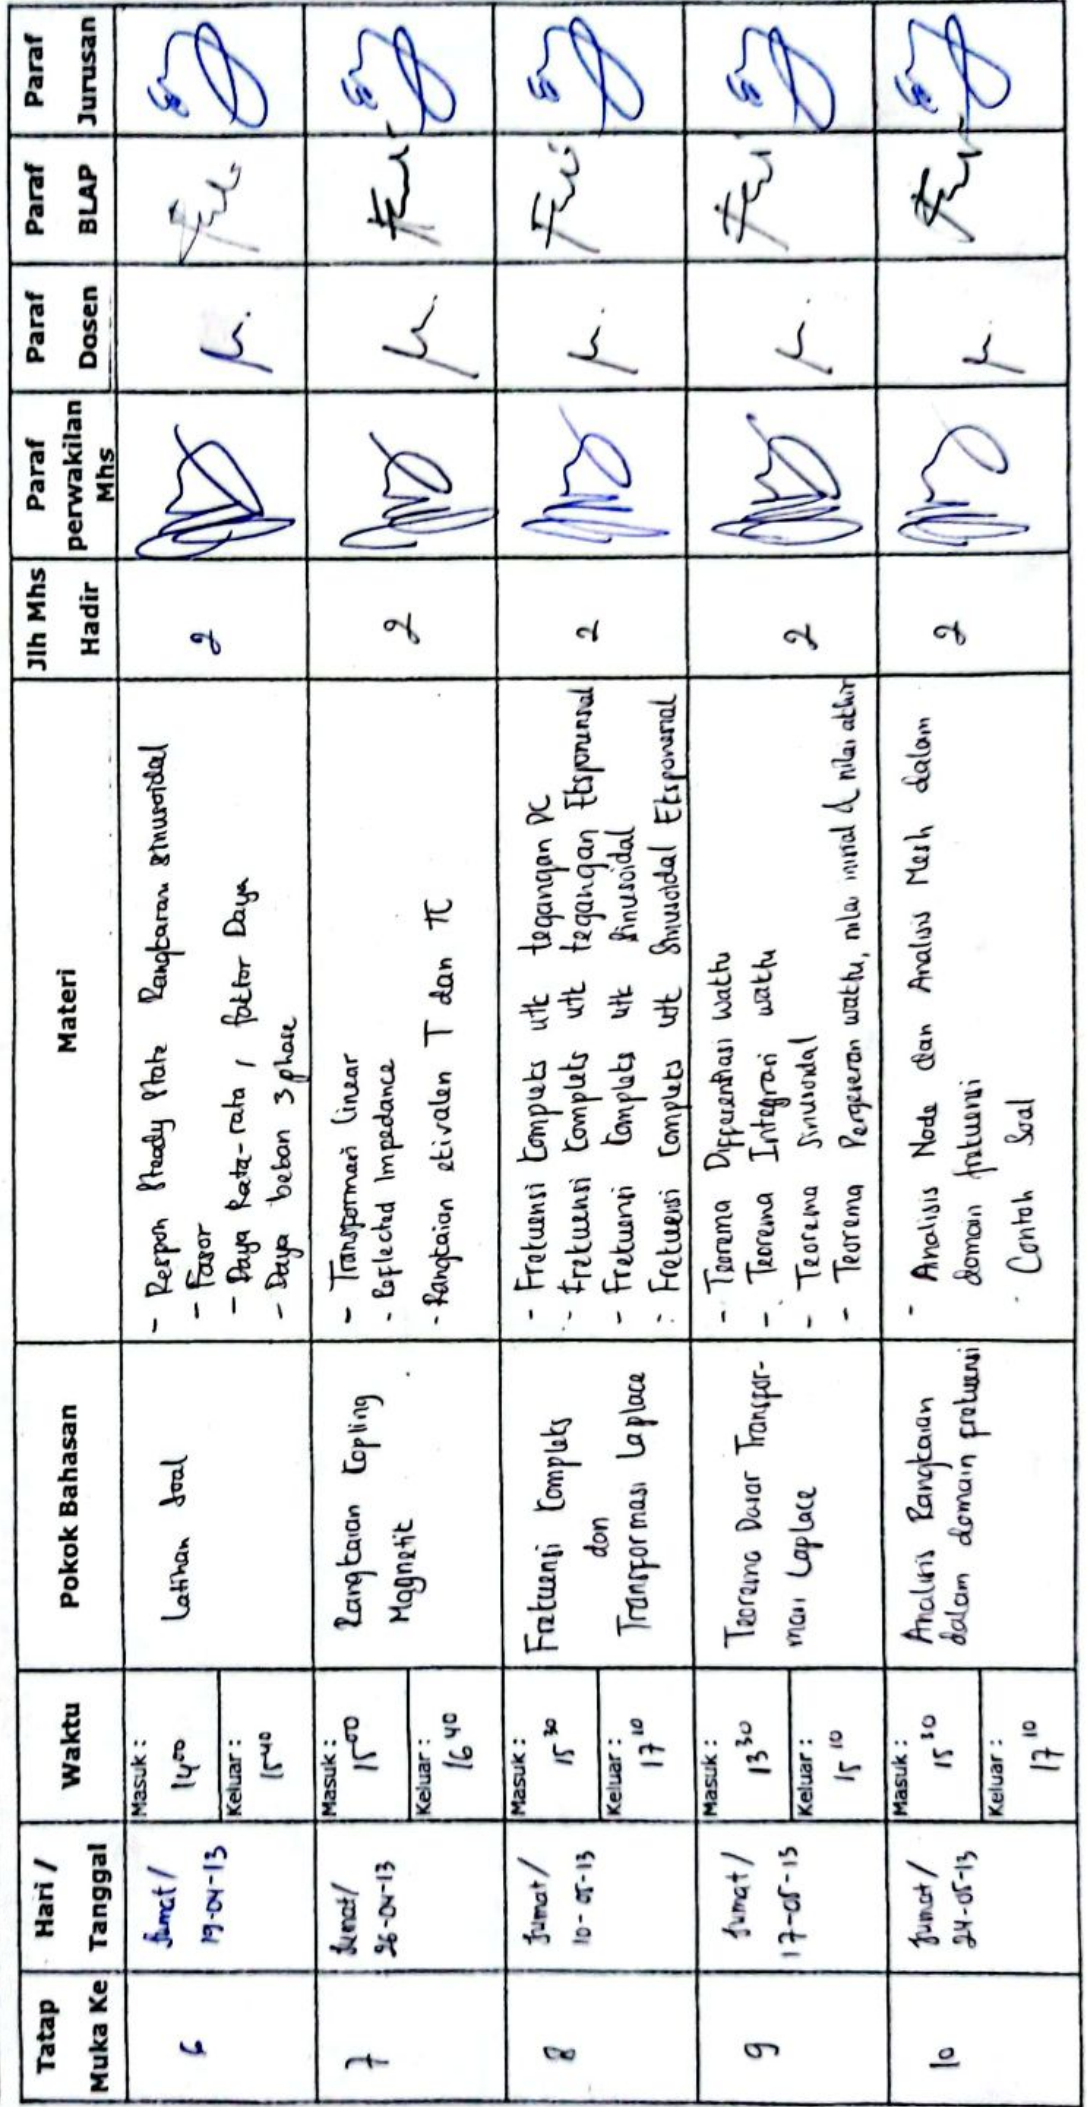 Tatap Muka Ke
Hari / Tanggal
Waktu
Pokok Bahasan
Materi
Jlh Mhs Hadir
Paraf perwakilan Mhs
Paraf Dosen
Paraf BLAP
Paraf Jurusan
6
Jumat /
19-04-13
Masuk :
14.00
Keluar :
15 40
Latihan Soal
- Respon Steady State Rangkaian Sinusoidal
- Fasor
- Daya Rata-rata, faktor Daya
- Daya beban 3 phase
2
7
Jumat/
26-04-13
Masuk :
15 00
Keluar :
16 40
Rangkaian Kopling
Magnetik
- Transformasi Linear
- Reflected Impedance
- Rangkaian ekivalen T dan π
2
8
Jumat/
10-05-13
Masuk :
15 30
Keluar :
17 10
Frekuensi Kompleks
dan
Transformasi Laplace
- Frekuensi Kompleks utk tegangan DC
- Frekuensi Kompleks utk tegangan Eksponensial
- Frekuensi Kompleks utk Sinusoidal
- Frekuensi Kompleks utk Sinusoidal Eksponensial
2
9
Jumat /
17-05-13
Masuk :
13 30
Keluar :
15 10
Teorema Dasar Transfor-
masi Laplace
- Teorema Differensiasi Waktu
- Teorema Integrasi waktu
- Teorema Sinusoidal
- Teorema Pergeseran waktu, nilai inisial & nilai akhir
2
10
Jumat /
24-05-13
Masuk :
15 30
Keluar :
17 10
Analisis Rangkaian
dalam domain frekuensi
- Analisis Node dan Analisis Mesh dalam
domain frekuensi
- Contoh Soal
2